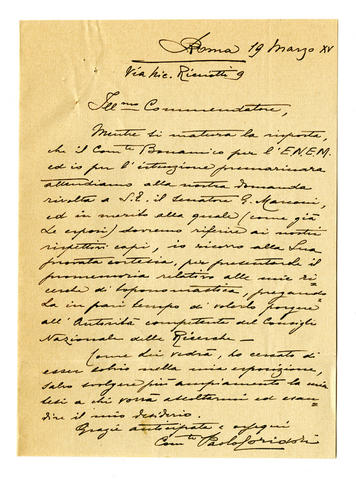 Roma 19 Marzo XV
Via Nic. Ricciotti 9
Ill.mo Commendatore,
Mentre si matura la risposta,
che il Com.te Bonamico per l'E.N.E.M.
ed io per l'istruzione premarinara
attendiamo alla nostra domanda
rivolta a S.E. il senatore G. Marconi,
ed in merito alla quale (come già
Le esposi) dovremo riferire ai nostri
rispettivi capi, io ricorro alla Sua
provata cortesia, per presentarLe il
promemoria relativo alle mie ri-
cerche di toponomastica, pregando-
La in pari tempo di volerlo porgere
all'Autorità competente del Consiglio
Nazionale delle Ricerche —
Come Lei vedrà, ho cercato di
esser sobrio nella mia esposizione,
salvo svolgere più ampiamente la mia
tesi a chi vorrà ascoltarmi ed esau-
dire il mio desiderio.
Grazie anticipate e ossequi
Com.te Paolo